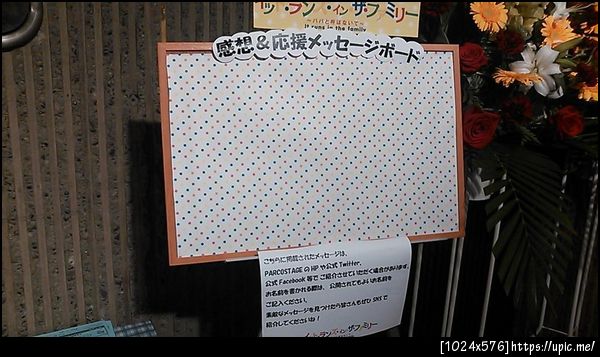 ッ・ラン・イン・ザ・ファミリー
～パパと呼ばないで～
It runs in the family
感想&応援メッセージボード
こちらに掲載されたメッセージは、
PARCOSTAGEのHPや公式Twitter、
公式Facebook等でご紹介させていただく場合があります。
お名前を書かれる際は、公開されてもよいお名前を
ご記入ください。
素敵なメッセージを見つけたら皆さんもぜひSNSで
紹介してくださいね！
ット・ランズ・イン・ザ・ファミリー
[1024x576]https://upic.me/